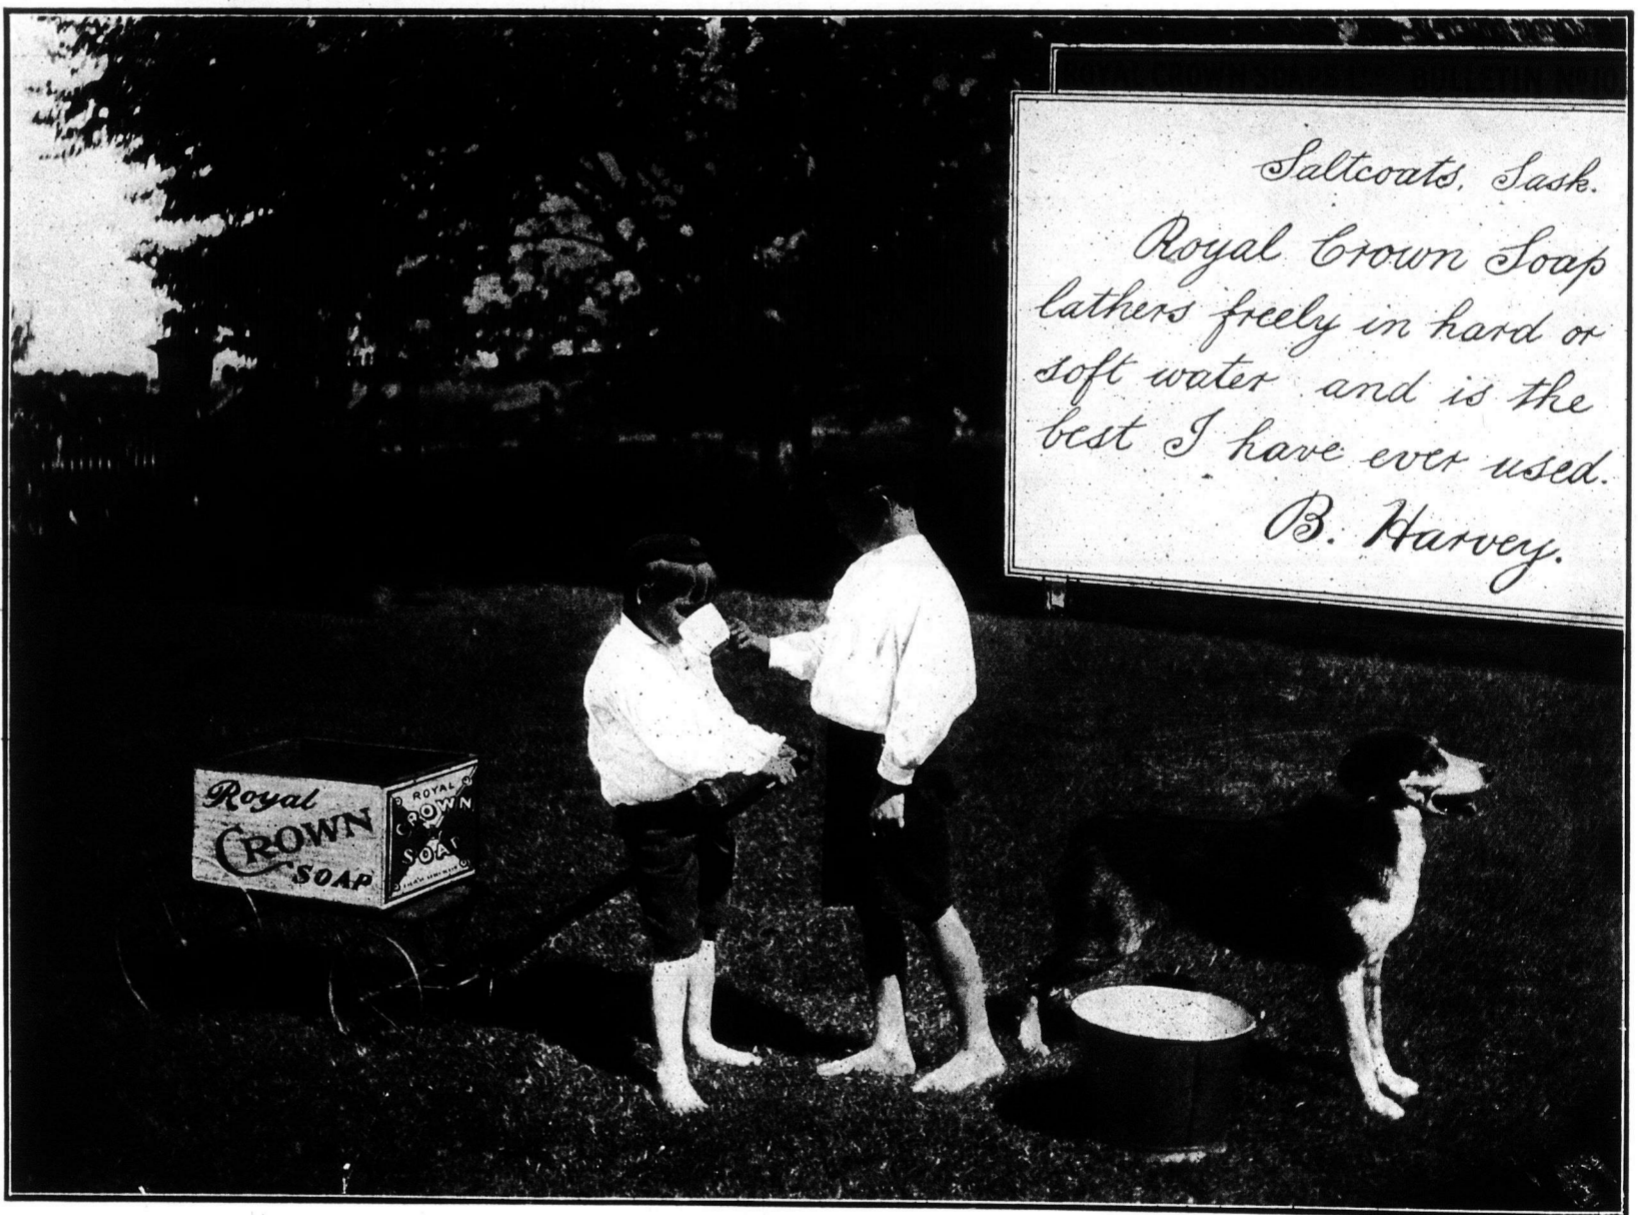 ROYAL CROWN SOAPS LTD BULLETIN No 10
Saltcoats, Sask.
Royal Crown Soap
lathers freely in hard or
soft water and is the
best I have ever used.
B. Harvey.
Royal
CROWN
SOAP
ROYAL
CROWN
SOAP